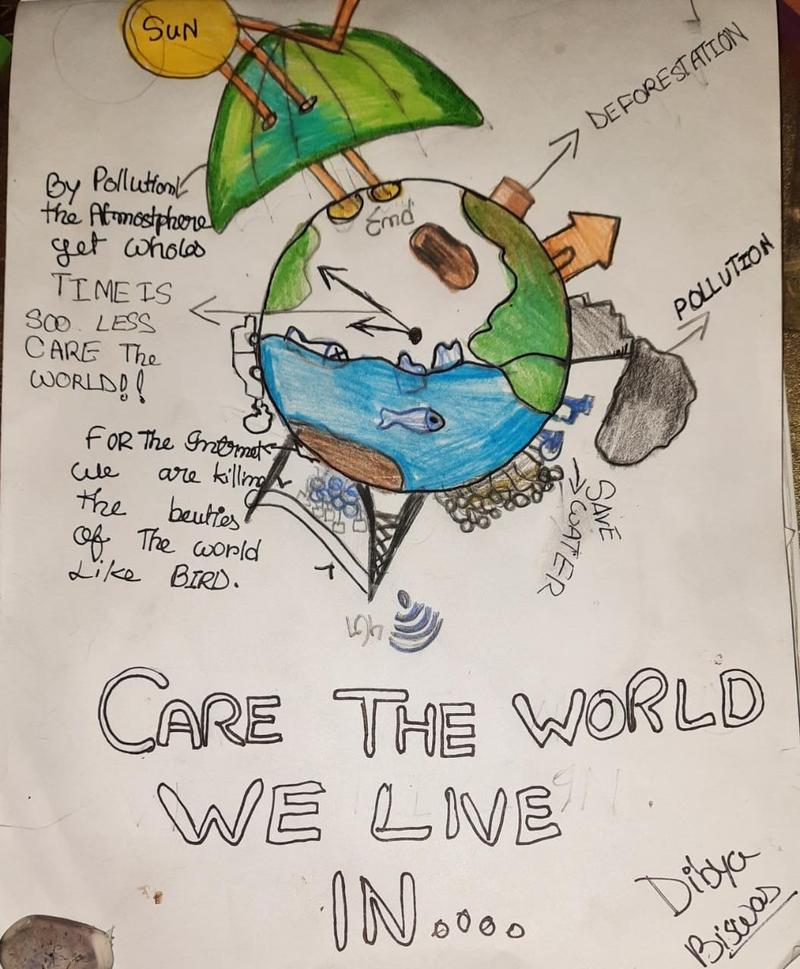 SUN
DEFORESTATION
By Pollution
the Atmostphere
get wholes
End
POLLUTION
TIME IS
SOO LESS
CARE The
WORLD!!
FOR The Internet
we are killing
the beuties
of The world
Like BIRD.
SAVE
WATER
CARE THE WORLD
WE LIVE
IN....
Dibya
Biswas